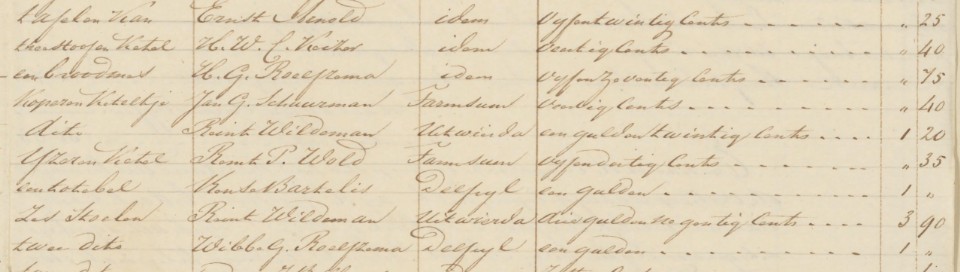 tafelen Kan Ernst Arnold idem Vyfentwintig Cents " 25
theestoofen Ketel H. W. C. idem Veertig Cents " 40
een broodmes H. G. Roelfzema idem Vyfenzeventig Cents " 75
Koperen Keteltje Jan G. Schuurman Farmsum Veertig Cents " 40
dito Reint Wildeman Uitwierda een gulden twintig Cents 1 20
Yzeren Ketel Reint P. Wold Farmsum Vyfendertig Cents " 35
een Barkelis Delfzyl een gulden 1 "
Zes Stoelen Reint Wildeman Uitwierda drie gulden negentig Cents 3 90
twee dito Wibb. G. Roelfzema Delfzyl een gulden 1 "